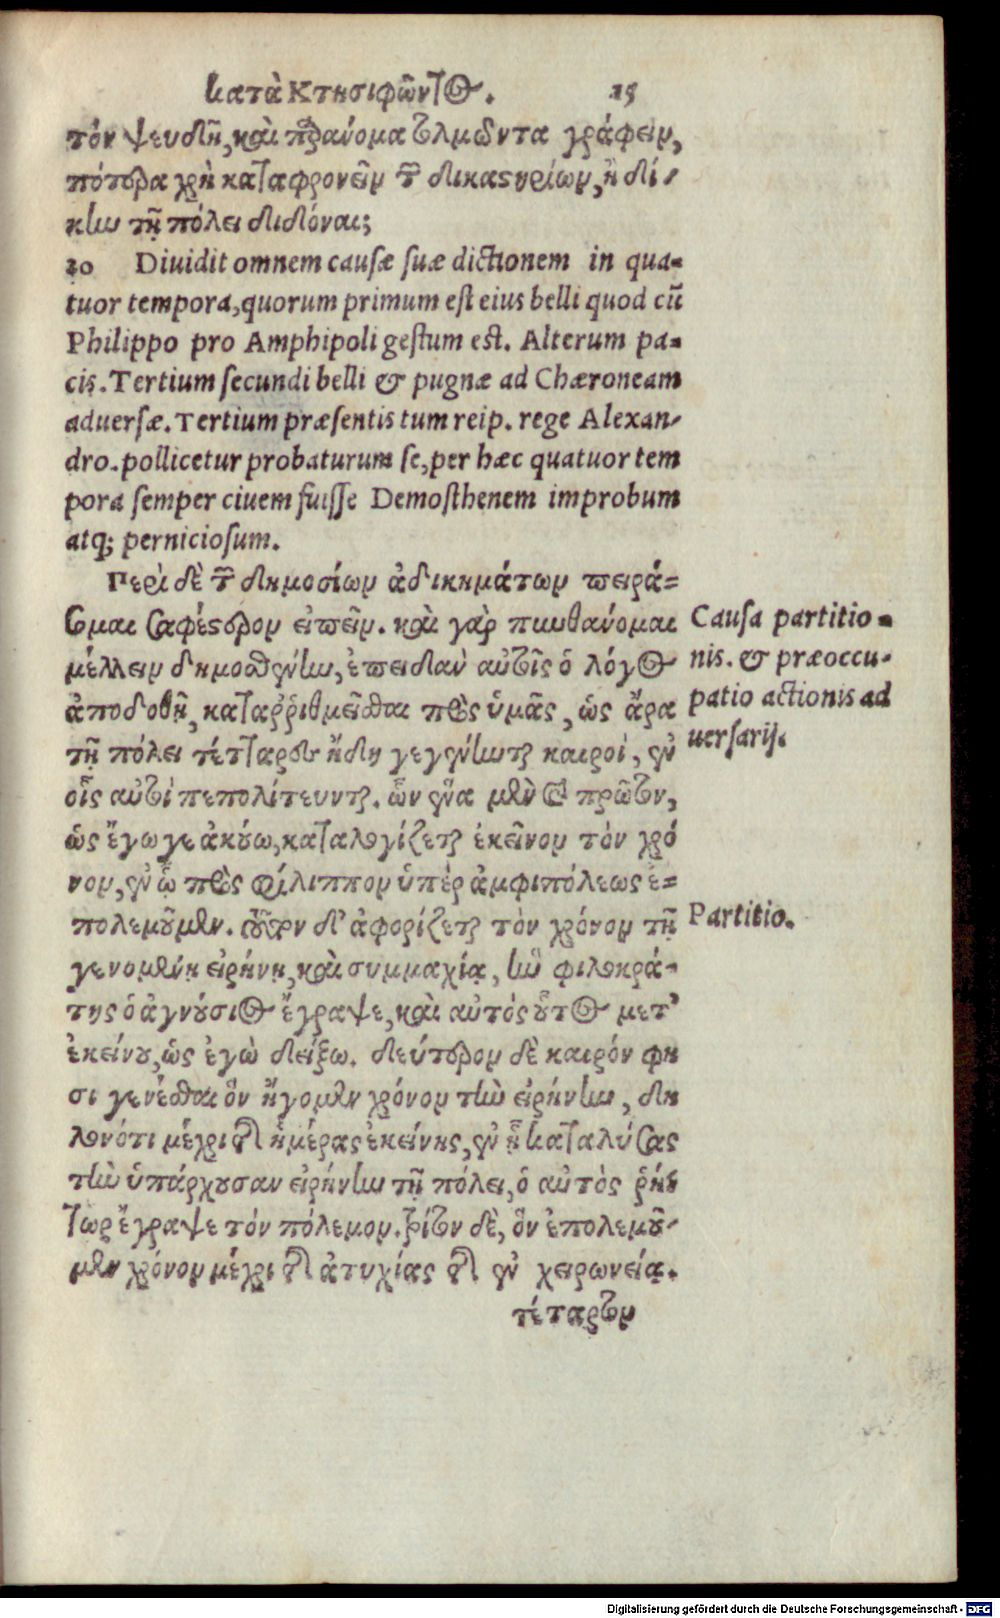 κατὰ Κτησιφῶντος. 15
τὸν ψευδῆ, καὶ παράνομα τολμῶντα γράφειν,
πότερα χρὴ καταφρονεῖν τῶν δικαστηρίων, ἢ δί-
κην τῇ πόλει διδόναι;
20 Diuidit omnem causæ suæ dictionem in qua-
tuor tempora, quorum primum est eius belli quod cū
Philippo pro Amphipoli gestum est. Alterum pa-
cis. Tertium secundi belli & pugnæ ad Chæroneam
aduersæ. Tertium præsentis tum reip. rege Alexan-
dro. pollicetur probaturum se, per hæc quatuor tem
pora semper ciuem fuisse Demosthenem improbum
atq; perniciosum.
Περὶ δὲ τῶν δημοσίων ἀδικημάτων πειρά-
σομαι σαφέστερον εἰπεῖν. καὶ γὰρ πυνθάνομαι
Causa partitio-
μέλλειν δημοσθένην, ἐπειδὰν αὐτοῖς ὁ λόγος
nis. & præoccu-
ἀποδοθῇ, καταῤῥιθμεῖσθαι πρὸς ὑμᾶς, ὡς ἄρα
patio actionis ad
τῇ πόλει τέτταρες ἤδη γεγένηνται καιροί, ἐν
uersarij.
οἷς αὐτὸς πεπολίτευνται. ὧν ἕνα μὲν καὶ πρῶτον,
ὡς ἔγωγε ἀκούω, καταλογίζεται ἐκεῖνον τὸν χρό
νον, ἐν ᾧ πρὸς φίλιππον ὑπὲρ ἀμφιπόλεως ἐ-
πολεμοῦμεν. τοῦτον δ' ἀφορίζεται τὸν χρόνον τῇ
Partitio.
γενομένῃ εἰρήνῃ, καὶ συμμαχίᾳ, ἣν φιλοκρά-
της ὁ ἁγνούσιος ἔγραψε, καὶ αὐτὸς οὗτος μετ'
ἐκείνου, ὡς ἐγὼ δείξω. δεύτερον δὲ καιρόν φη
σι γενέσθαι ὃν ἤγομεν χρόνον τὴν εἰρήνην, δη
λονότι μέχρι τῆς ἡμέρας ἐκείνης, ἐν ᾗ καταλύσας
τὴν ὑπάρχουσαν εἰρήνην τῇ πόλει, ὁ αὐτὸς ῥή-
τωρ ἔγραψε τὸν πόλεμον. τρίτον δὲ, ὃν ἐπολεμοῦ-
μεν χρόνον μέχρι τῆς ἀτυχίας τῆς ἐν χειρωνείᾳ.
τέταρτον
Digitalisierung gefördert durch die Deutsche Forschungsgemeinschaft - DFG